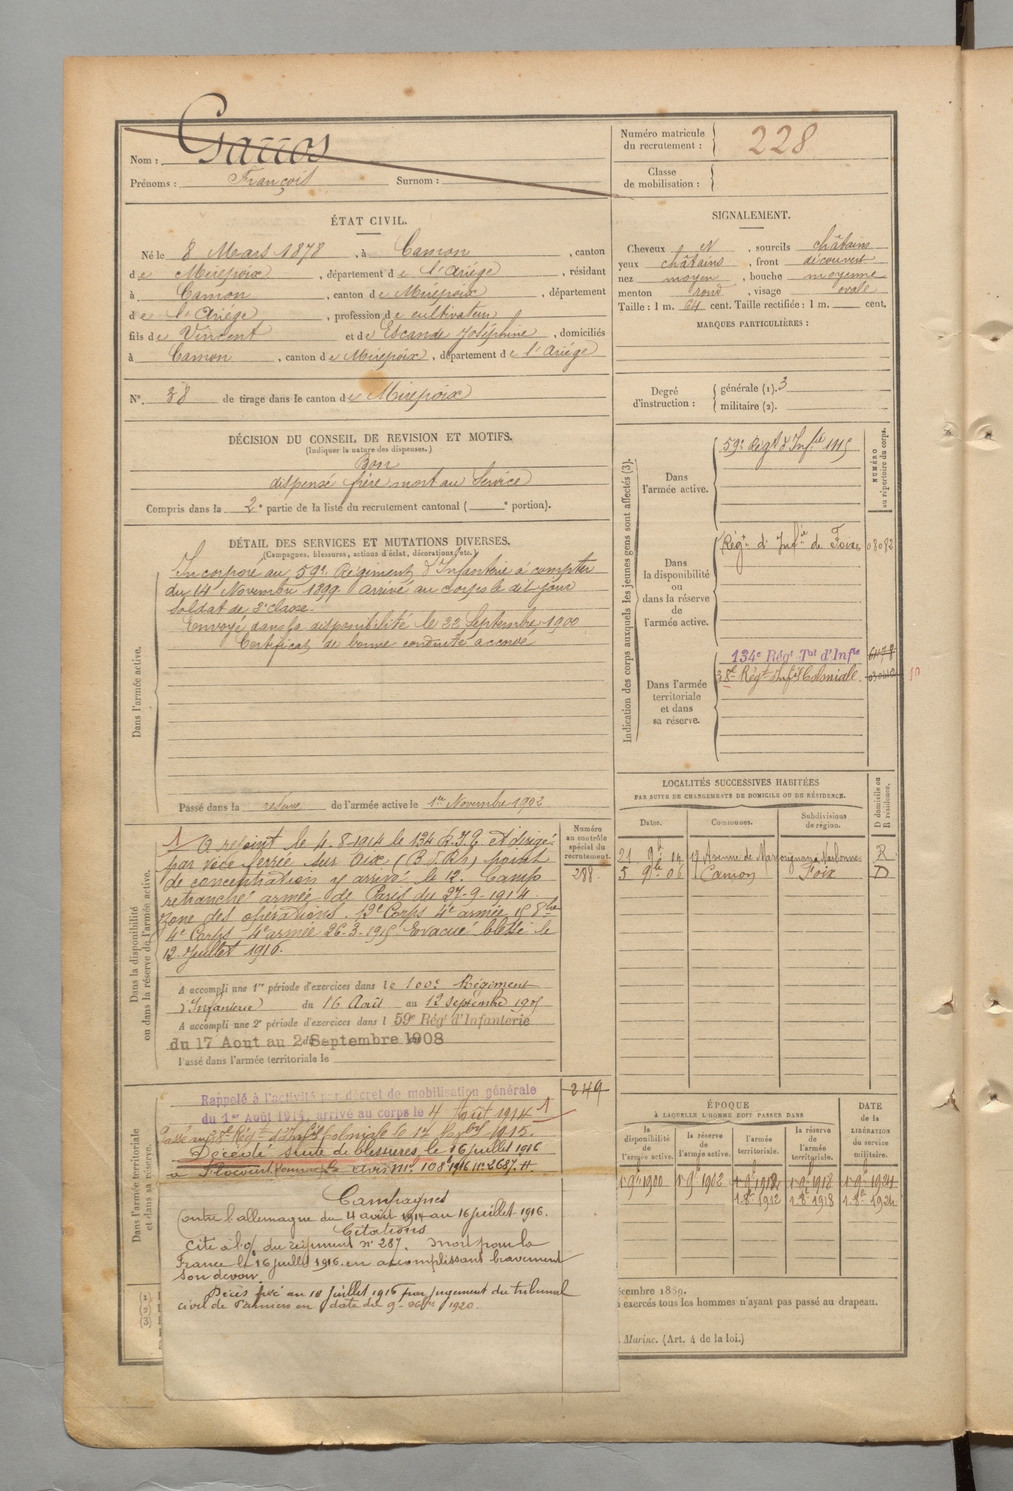 Nom : Garros
Prénoms : François Surnom :
Numéro matricule du recrutement : 228
Classe de mobilisation :
ÉTAT CIVIL.
Né le 8 Mars 1878, à Camon, canton
de Mirepoix, département de l'Ariége, résidant
à Camon, canton de Mirepoix, département
de l'Ariége, profession de cultivateur
fils de Vincent et de Escande Joséphine, domiciliés
à Camon, canton de Mirepoix, département de l'Ariége
N°. 38 de tirage dans le canton de Mirepoix
SIGNALEMENT.
Cheveux N, sourcils châtains
yeux châtains, front découvert
nez moyen, bouche moyenne
menton rond, visage ovale
Taille : 1 m. 64 cent. Taille rectifiée : 1 m. cent.
MARQUES PARTICULIÈRES :
Degré d'instruction : générale (1). 3
militaire (2).
DÉCISION DU CONSEIL DE REVISION ET MOTIFS.
(Indiquer la nature des dispenses.)
Bon
dispensé frère mort au Service
Compris dans la 2e partie de la liste du recrutement cantonal ( e portion).
DÉTAIL DES SERVICES ET MUTATIONS DIVERSES.
(Campagnes, blessures, actions d'éclat, décorations, etc.)
Dans l'armée active.
Incorporé au 59e Régiment d'Infanterie à compter
du 14 Novembre 1899 arrivé au corps le dit jour
soldat de 2e classe.
Envoyé dans la disponibilité le 22 Septembre 1900
Certificat de bonne conduite accordé
Passé dans la réserve de l'armée active le 1er Novembre 1902
Dans la disponibilité ou dans la réserve de l'armée active.
Numéro au contrôle spécial du recrutement.
288
A rejoint le 4-8-1914 le 134 R.I.T. et dirigé
par voie ferrée sur point
de concentration y arrivé le 12. Camp
retranché armée de Paris du 27-9-1914
Zone des opérations. 12e Corps 4e armée
4e Corps 4e armée 26-3-1915 Evacué blessé le
12 Juillet 1916.
A accompli une 1re période d'exercices dans le 100e Régiment
d'Infanterie du 16 Août au 12 septembre 1905
A accompli une 2e période d'exercices dans l 59e Régt d'Infanterie
du 17 Aout au 2 Septembre 1908
Passé dans l'armée territoriale le
Dans l'armée territoriale et dans sa réserve.
249
Rappelé à l'activité par décret de mobilisation générale
du 1er Août 1914, arrivé au corps le 4 Août 1914
Passé au 38e Régt d'Inftie Coloniale le 1915.
Décédé suite de blessures le 16 juillet 1916
à Somme avis
Campagnes
Contre l'allemagne du 4 août 1914 au 16 juillet 1916.
Citations
Cité à l'o/ du régiment n° 287. mort pour la
France le 16 juillet 1916 en accomplissant bravement
son devoir.
Décès fixé au 10 Juillet 1916 par jugement du tribunal
civil de Pamiers en date du 9- 1920.
(1)
(2)
(3)
Indication des corps auxquels les jeunes gens sont affectés (3).
NUMÉRO au répertoire du corps.
Dans l'armée active.
59e Régt d'Inftie
Dans la disponibilité ou dans la réserve de l'armée active.
Régt d'Infie de Foix 08082
Dans l'armée territoriale et dans sa réserve.
134e Régt Tal d'Infie
38e Régt Inftie Coloniale
LOCALITÉS SUCCESSIVES HABITÉES
PAR SUITE DE CHANGEMENTS DE DOMICILE OU DE RÉSIDENCE.
Dates. Communes. Subdivisions de région. D domicile ou R résidence.
Narbonne R
5 9bre 06 Camon Foix D
ÉPOQUE
À LAQUELLE L'HOMME DOIT PASSER DANS
DATE de la LIBÉRATION du service militaire.
la disponibilité de l'armée active. la réserve de l'armée active. l'armée territoriale. la réserve de l'armée territoriale.
1er 9bre 1900 1er 9bre 1902 1er 9bre 1912 1er 9bre 1918 1er 9bre 1924
1.8.1912 1.8.1918 1.8.1924
écembre 1889.
exercés tous les hommes n'ayant pas passé au drapeau.
Marine. (Art. 4 de la loi.)